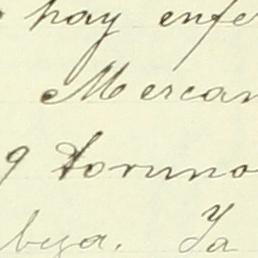 hay enfe
Mercan
9 Toruno
beza. Ya